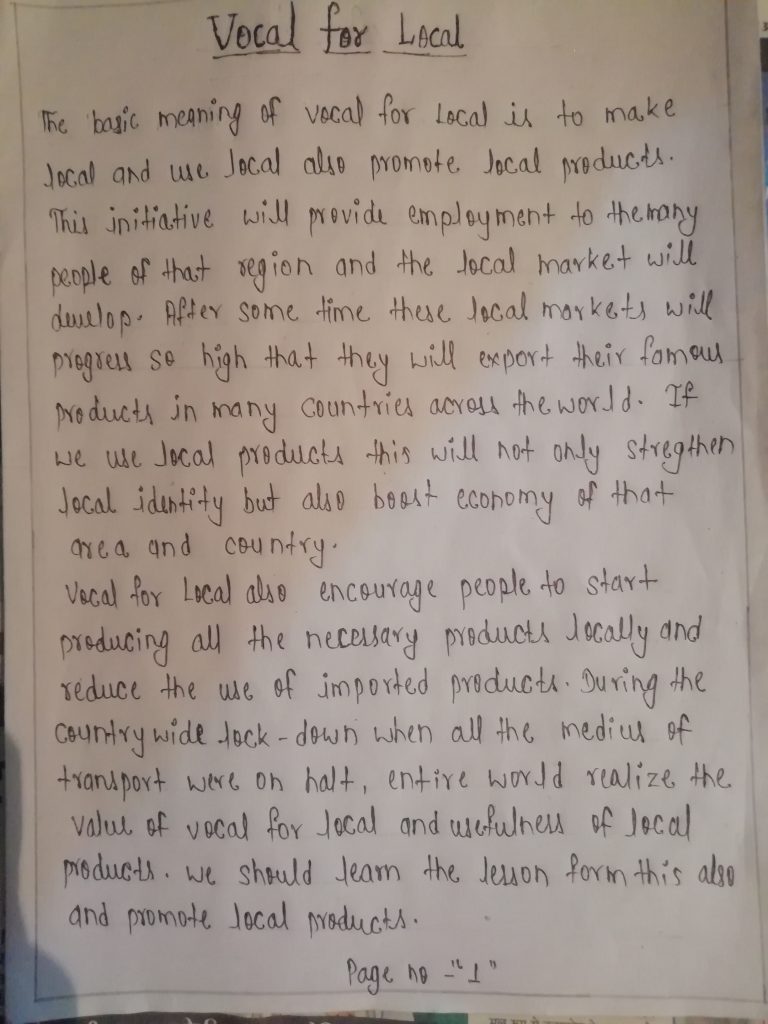 Vocal for Local
The basic meaning of vocal for Local is to make
local and use local also promote local products.
This initiative will provide employment to the many
people of that region and the local market will
develop. After some time these local markets will
progress so high that they will export their famous
products in many countries across the world. If
we use local products this will not only stregthen
local identity but also boost economy of that
area and country.
Vocal for Local also encourage people to start
producing all the necessary products locally and
reduce the use of imported products. During the
country wide lock-down when all the medius of
transport were on halt, entire world realize the
value of vocal for local and usefulness of local
products. we should learn the lesson form this also
and promote local products.
Page no -"1"